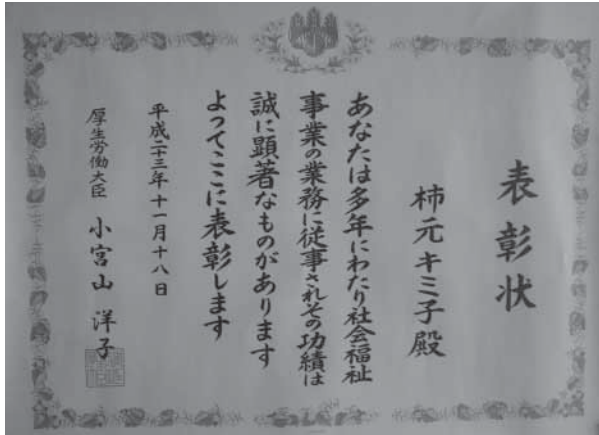 表彰状
柿元キミ子殿
あなたは多年にわたり社会福祉
事業の業務に従事されその功績は
誠に顕著なものがあります
よってここに表彰します
平成二十三年十一月十八日
厚生労働大臣 小宮山洋子